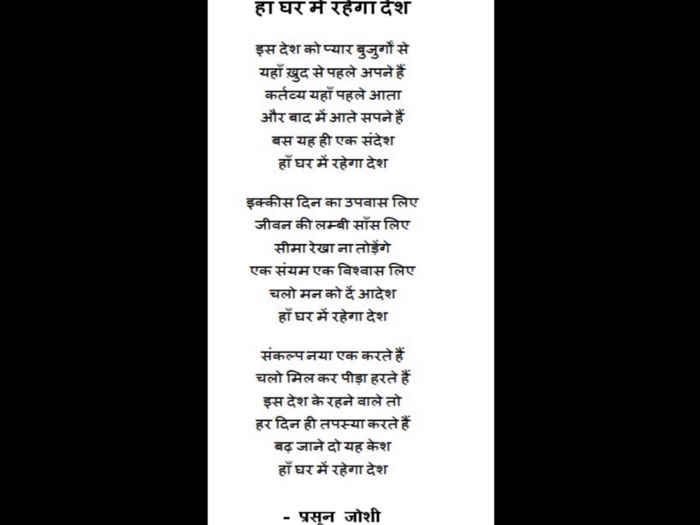 हाँ घर में रहेगा देश
इस देश को प्यार बुजुर्गों से
यहाँ ख़ुद से पहले अपने हैं
कर्तव्य यहाँ पहले आता
और बाद में आते सपने हैं
बस यह ही एक संदेश
हाँ घर में रहेगा देश
इक्कीस दिन का उपवास लिए
जीवन की लम्बी साँस लिए
सीमा रेखा ना तोड़ेंगे
एक संयम एक विश्वास लिए
चलो मन को दें आदेश
हाँ घर में रहेगा देश
संकल्प नया एक करते हैं
चलो मिल कर पीड़ा हरते हैं
इस देश के रहने वाले तो
हर दिन ही तपस्या करते हैं
बढ़ जाने दो यह केश
हाँ घर में रहेगा देश
- प्रसून जोशी